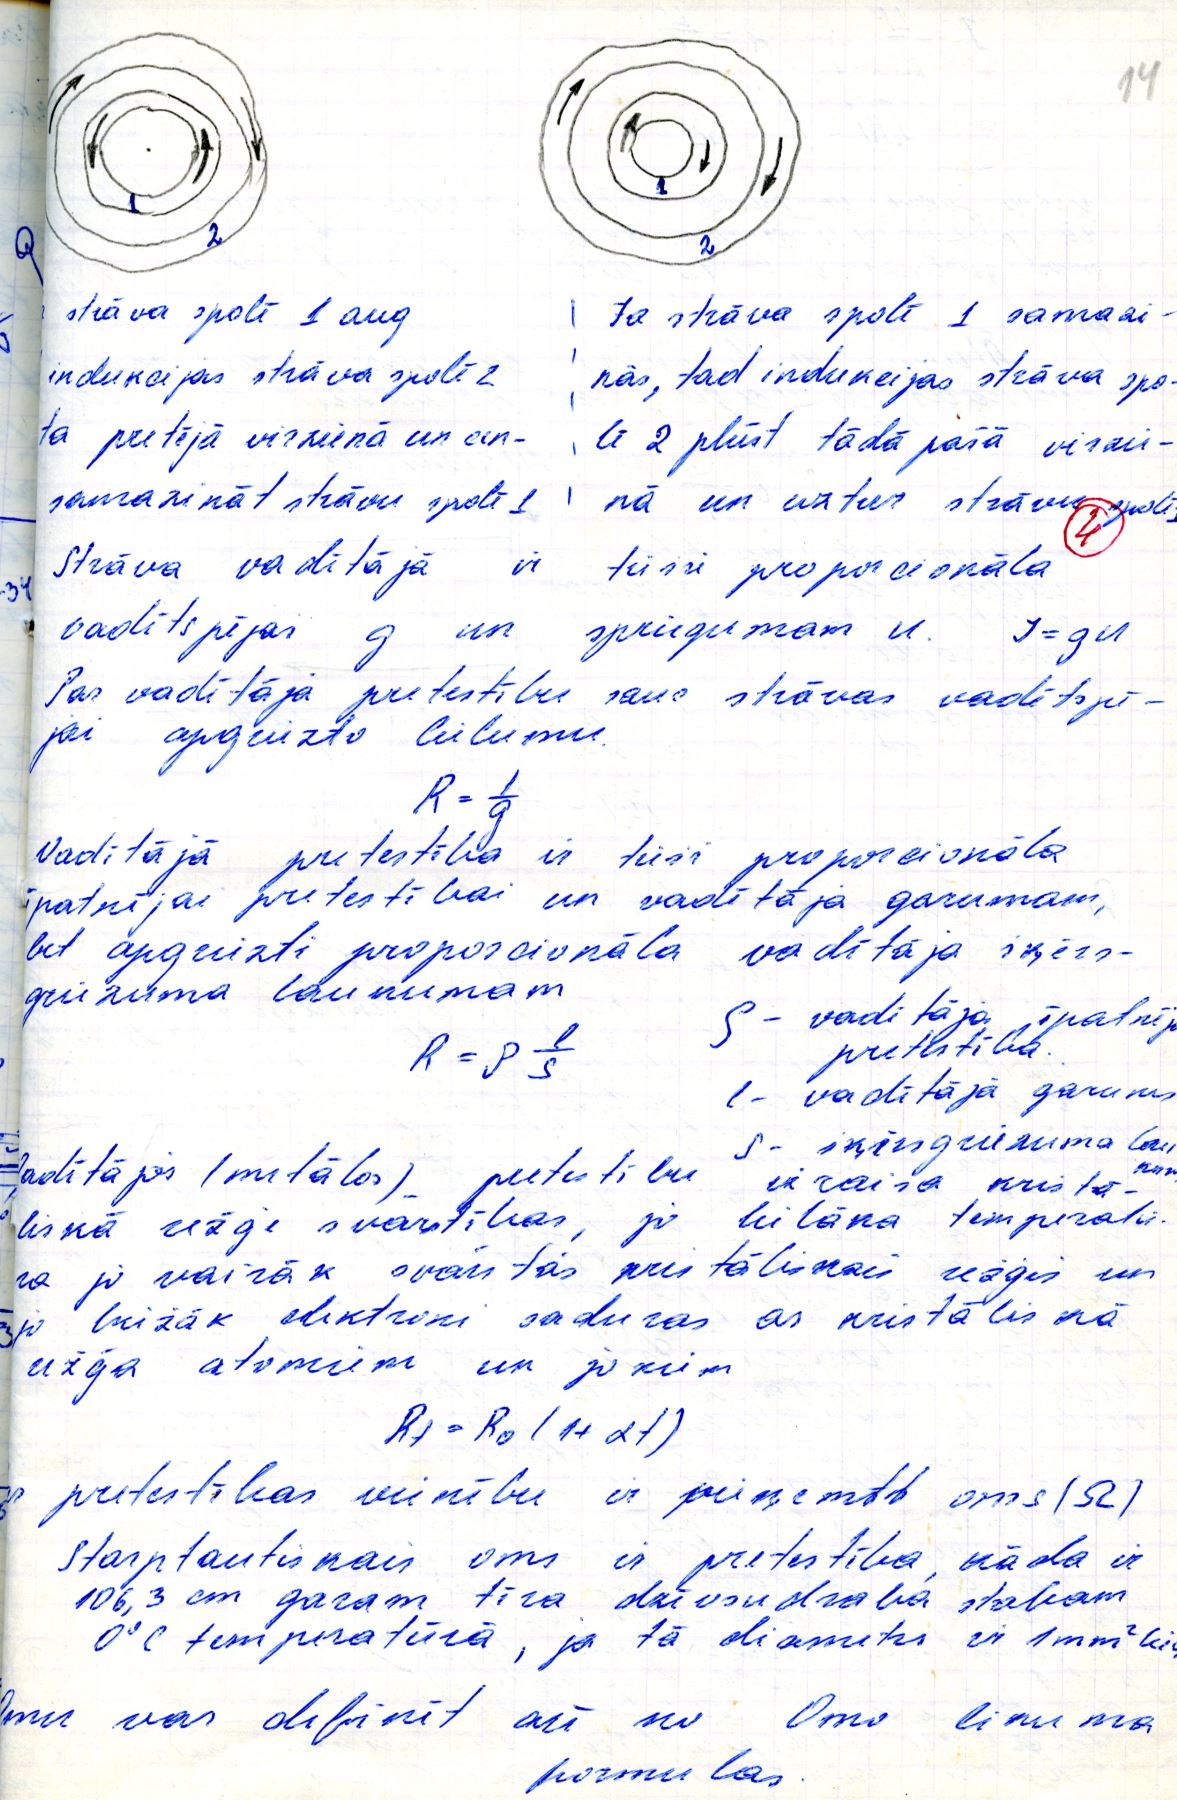 14
1
2
1
2
strāva spolē 1 aug
indukcijas strāva spolē 2
ta pretējā virzienā un cen-
samazināt strāvu spolē 1
Ja strāva spolē 1 samazi-
nās, tad indukcijas strāva spo-
lē 2 plūst tādā pašā virzie-
nā un uztur strāvu spolē 1
4
Strāva vadītājā ir tieši proporcionāla
vadītspējai g un spriegumam u. I = gU
Par vadītāja pretestību sauc strāvas vadītspē-
jai apgriezto lielumu.
R = 1/g
Vadītājā pretestība ir tieši proporcionāla
īpatnējai pretestībai un vadītāja garumam,
bet apgriezti proporcionāla vadītāja šķērs-
griezuma laukumam
ρ - vadītāja īpatnējā
pretestība.
R = ρ l/S
l - vadītājā garums
S - šķērsgriezuma lau
kum
Vadītājos (metālos) pretestību izraisa kristā-
liskā režģe svārstības, jo lielāka temperatū-
ra jo vairāk svārstās kristāliskais režģis un
jo biežāk elektroni saduras ar kristāliskā
režģa atomiem un joniem
Rt = R0 (1 + αt)
pretestības vienību ir pieņemts oms (Ω)
Starptautiskais oms ir pretestība, kāda ir
106,3 cm garam tīra dzīvsudraba stabam
0°C temperatūrā, ja tā diametrs ir 1 mm²
Omu var definēt arī no Oma likuma
formulas.